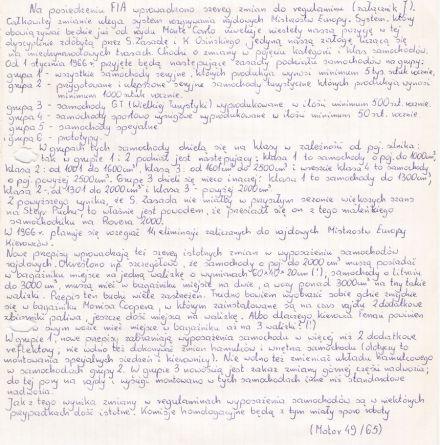 Na posiedzeniu FIA wprowadzono szereg zmian do regulaminu (załącznik J).
Całkowitej zmianie ulega system rozgrywania rajdowych Mistrzostw Europy. System, który
obowiązywać będzie już od rajdu Monte Carlo niweluje niestety naszą pozycję w tej
dyscyplinie zdobytą przez S. Zasadę i K. Osińskiego jedyną naszą załogę liczącą się
na międzynarodowych trasach. Chodzi o zmiany w ujęciu kategorii i klas samochodów.
Od 1 stycznia 1966 r. przyjęte będą następujące zasady podziału samochodów na grupy:
grupa 1 - wszystkie samochody seryjne, których produkcja wynosi minimum 5 tys. sztuk rocznie.
grupa 2 - przygotowane i ulepszone seryjne samochody turystyczne których produkcja wynosi
minimum 1000 sztuk rocznie.
grupa 3 - samochody GT (Wielkiej Turystyki) wyprodukowane w ilości minimum 500 szt. rocznie.
grupa 4 - samochody sportowe wyścigowe wyprodukowane w ilości minimum 50 szt. rocznie
grupa 5 - samochody specjalne
grupa 6 - prototypy.
W grupach tych samochody dzielą się na klasy w zależności od poj. silnika:
tak w grupie 1 i 2 podział jest następujący: klasa 1 to samochody o poj. do 1000 cm³,
klasa 2: od 1001 do 1600 cm³, klasa 3: od 1601 do 2500 cm³ i wreszcie klasa 4 to samochody
o poj. powyżej 2500 cm³. Grupę 3 dzieli się nieco inaczej: klasa 1 to samochody do 1300 cm³,
klasa 2 - od 1301 do 2000 cm³ i klasa 3 - powyżej 2000 cm³.
Z powyższego wynika, że S. Zasada nie miałby w przyszłym sezonie większych szans
na Steyr Puchu, to właśnie jest powodem, że przesiadł się on z tego maleńkiego
samochodziku na Rovera 2000.
W 1966 r. planuje się rozegrać 14 eliminacji zaliczanych do rajdowych Mistrzostw Europy
Kierowców.
Nowe przepisy wprowadzają też szereg istotnych zmian w wyposażeniu samochodów
rajdowych. Określono np. szczególnie, że samochody o poj. do 2000 cm³ muszą posiadać
w bagażniku miejsce na jedną walizkę o wymiarach 60x40x20 cm (!), samochody o litrażu
do 3000 cm³, muszą mieć w bagażniku miejsce na dwie, a wozy ponad 3000 cm³ na trzy takie
walizki. Przepis ten budzi wiele zastrzeżeń. Trudno bowiem wyobrazić sobie gdzie znajdzie
się w bagażniku Morrisa Coopera, w którym zainstalowane są na czas rajdu 2 dodatkowe
zbiorniki paliwa, jeszcze dość miejsca na walizkę. Albo dlaczego kierowca Ferrari powinien
w swym wozie mieć miejsce w bagażniku aż na 3 walizki (!)
W grupie 1, nowe przepisy zabraniają wyposażenia samochodu w więcej niż 2 dodatkowe
reflektory, nie wolno też dokonywać zmian hamulców i wnętrza samochodu (dotyczy to
montowania specjalnych siedzeń i kierownicy). Nie wolno też zmieniać układu hamulcowego
w samochodach grupy 2. W grupie 3 nowością jest zakaz zmiany górnej części nadwozia;
do tej pory na rajdy i wyścigi montowano w tych samochodach inne niż standardowe
nadwozia.
Jak z tego wynika zmiany w regulaminach wyposażenia samochodów są w niektórych
przypadkach dość istotne. Komisje homologacyjne będą z tym miały sporo roboty
(Motor 49/65)